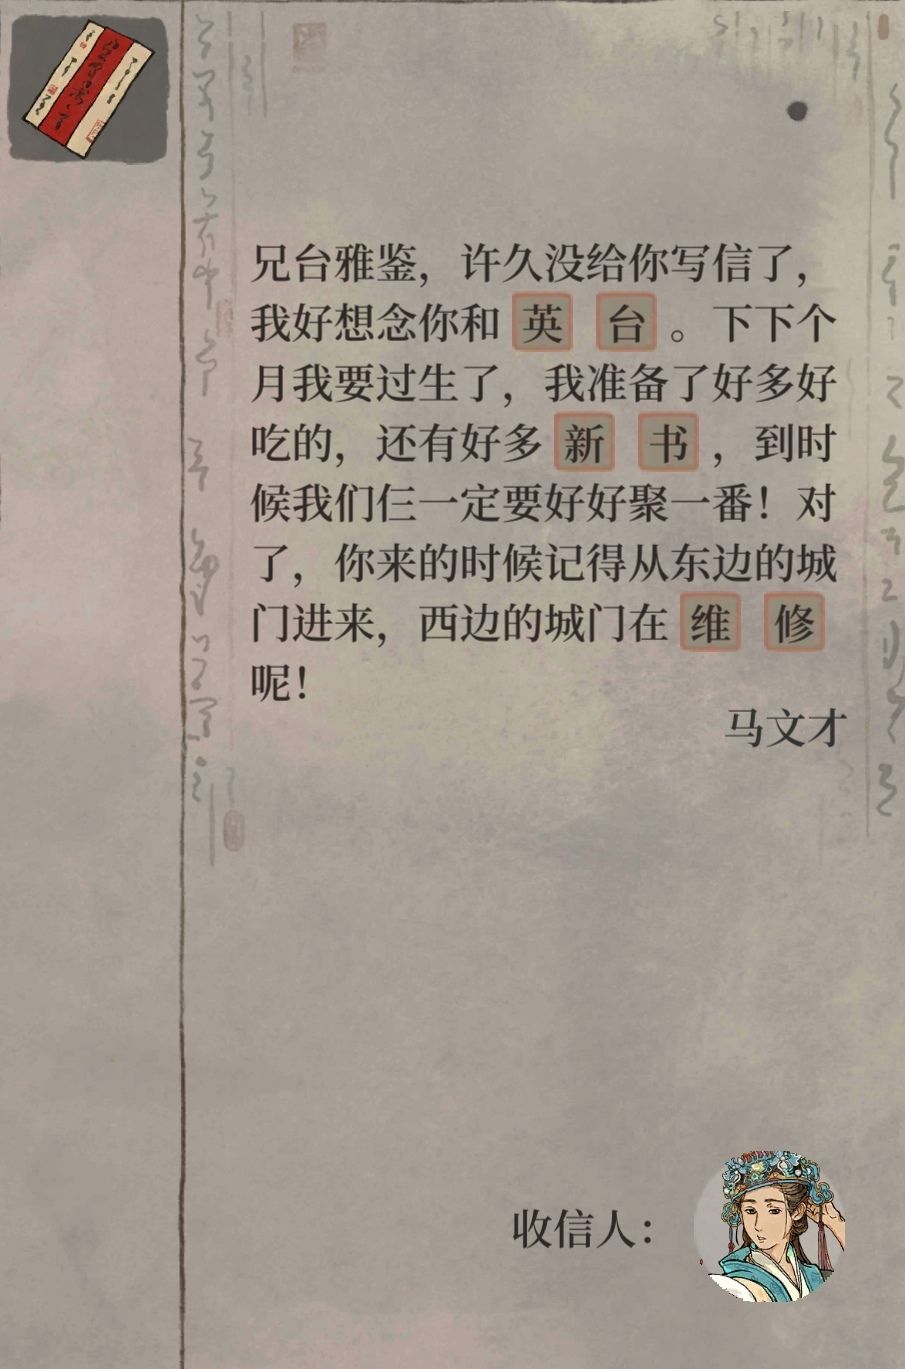 兄台雅鉴，许久没给你写信了，
我好想念你和英台。下下个
月我要过生了，我准备了好多好
吃的，还有好多新书，到时
候我们仨一定要好好聚一番！对
了，你来的时候记得从东边的城
门进来，西边的城门在维修
呢！
马文才
收信人：